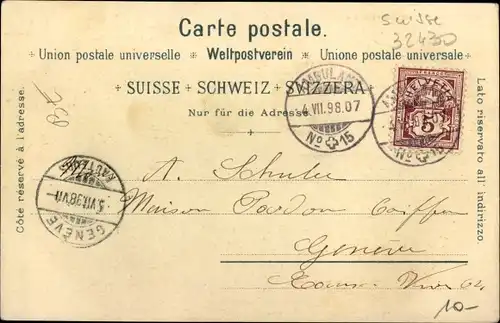 Carte postale.
Suisse
32430
Union postale universelle Weltpostverein Unione postale universale
SUISSE SCHWEIZ SVIZZERA
Nur für die Adresse
Côté réservé à l'adresse.
Lato riservato all' indirizzo.
AMBULANT
4.VII.98.07
No 15
5
GENÈVE
5.VII.98.VII
A. Schuler
Maison Pardon Coiffeur
Genève
10-